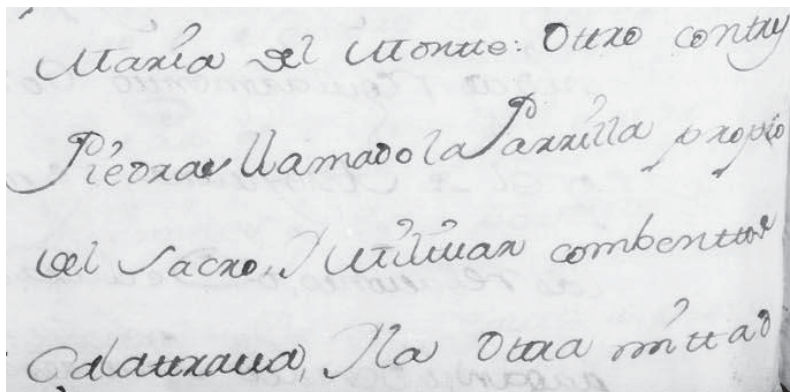 Maria del Monte: Ottro con tres
Piedras llamado la Parrilla propio
del Sacro, Y Militar combentto de
Calattraua, Y la Ottra mittad